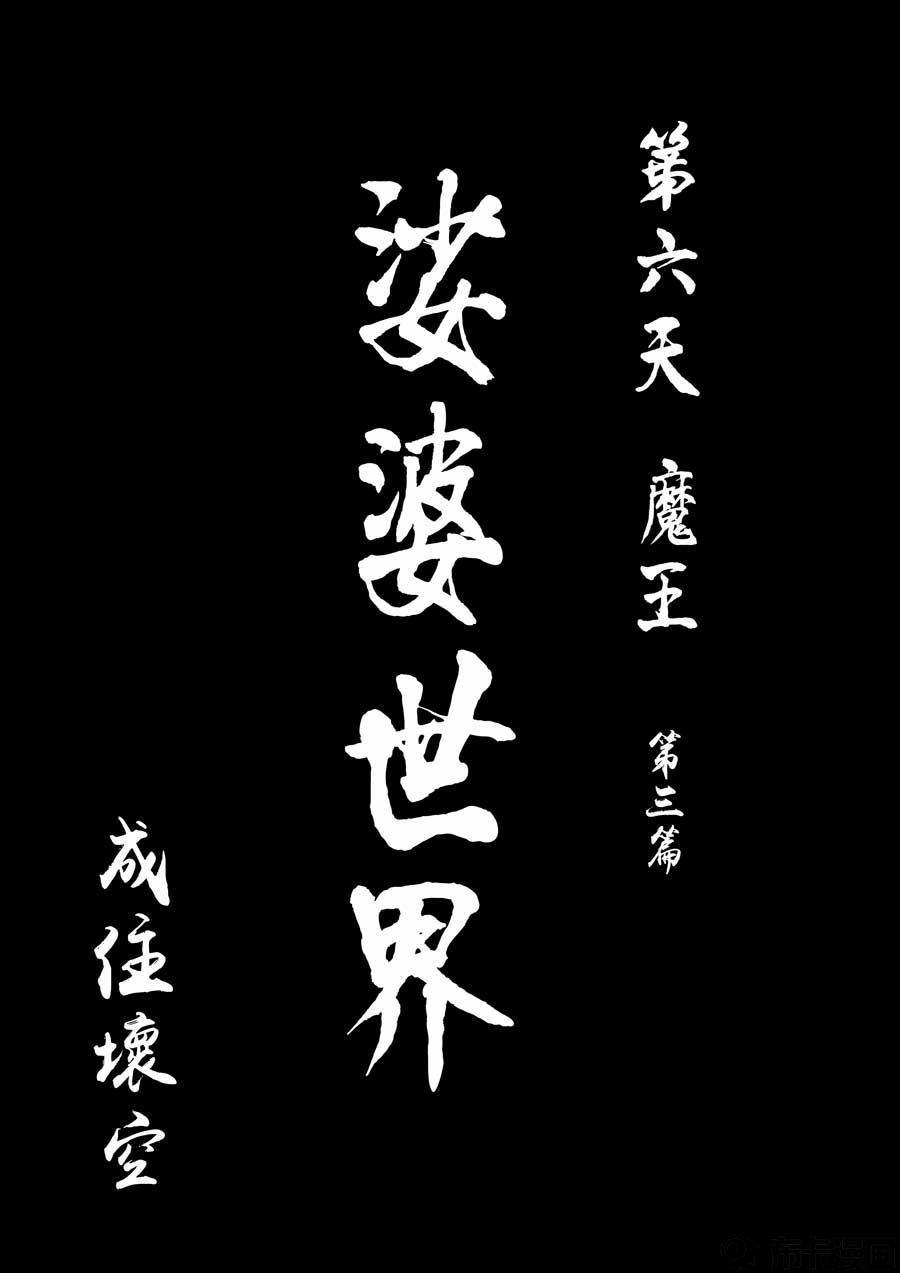 第六天 魔王 第三篇
娑婆世界
成住壞空
布卡漫画